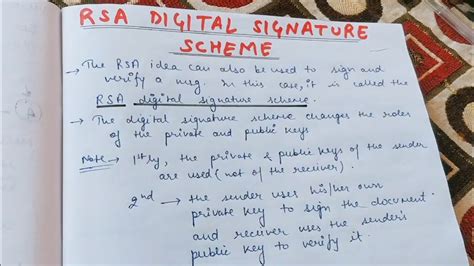 RSA DIGITAL SIGNATURE
SCHEME
→ The RSA idea can also be used to sign and
verify a msg. In this case, it is called the
RSA digital signature scheme.
→ The digital signature scheme changes the roles
of the private and public keys
Note → 1stly, the private & public keys of the sender
are used (not of the receiver).
2nd → the sender uses his/her own
private key to sign the document.
and receiver uses the sender's
public key to verify it.